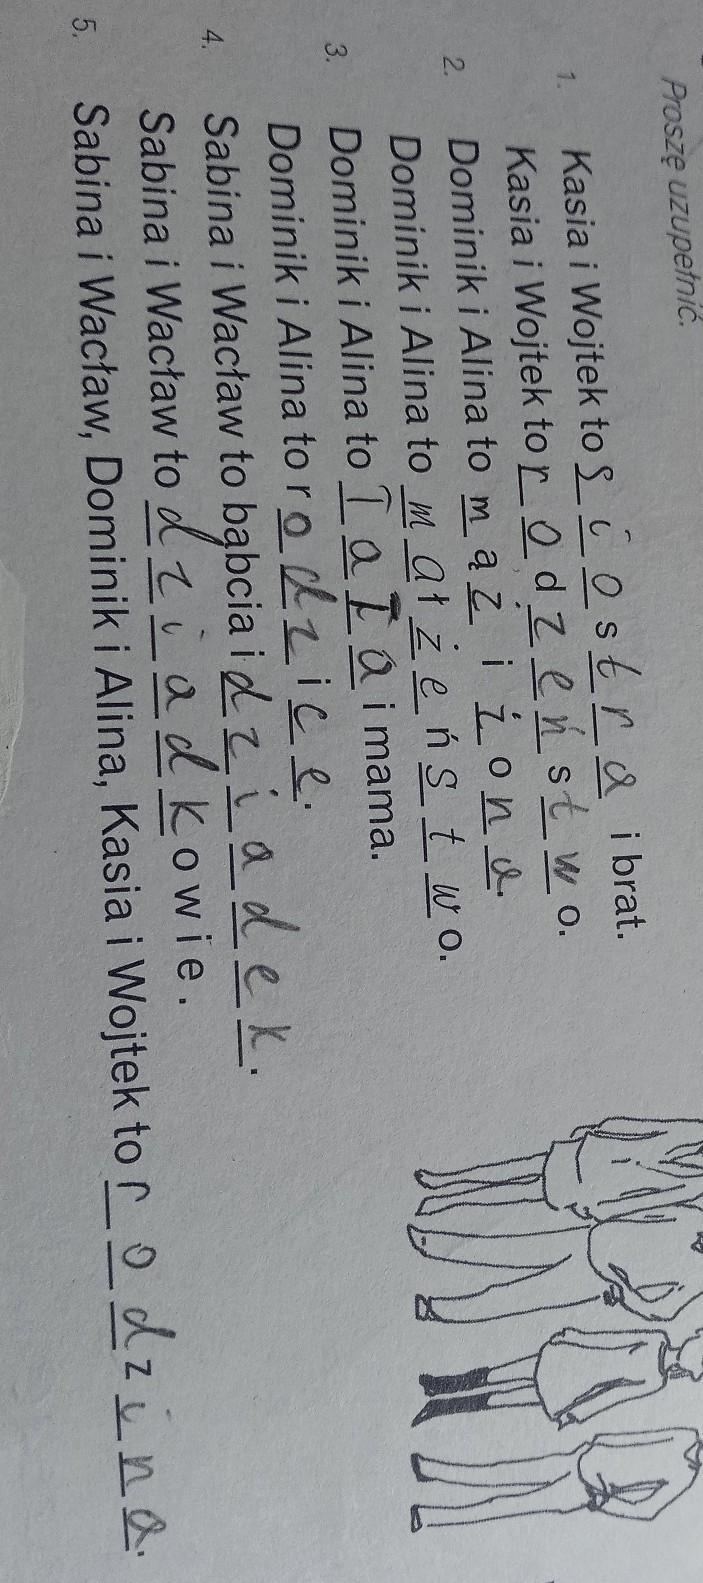 Proszę uzupełnić.
1. Kasia i Wojtek to siostra i brat.
Kasia i Wojtek to rodzeństwo.
2. Dominik i Alina to mąż i żona.
Dominik i Alina to małżeństwo.
3. Dominik i Alina to Tata i mama.
Dominik i Alina to rodzice.
4. Sabina i Wacław to babcia i dziadek.
Sabina i Wacław to dziadkowie.
5. Sabina i Wacław, Dominik i Alina, Kasia i Wojtek to rodzina.